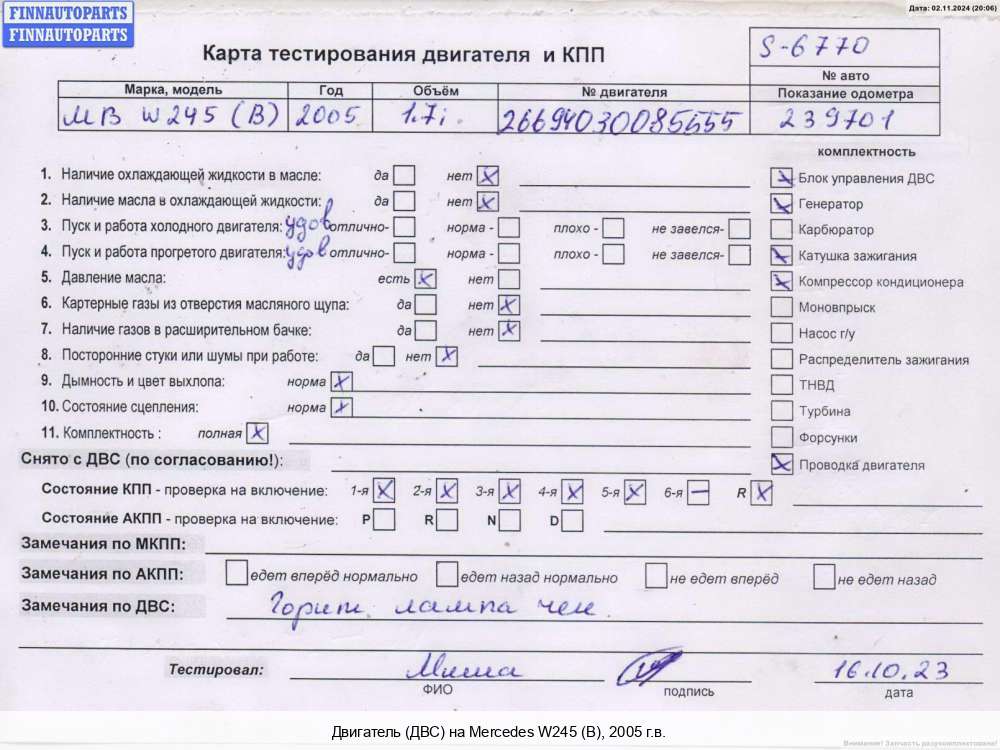 FINNAUTOPARTS
FINNAUTOPARTS
Дата: 02.11.2024 (20:06)
Карта тестирования двигателя и КПП
S-6770
№ авто
Марка, модель Год Объём № двигателя Показание одометра
МВ W245 (В) 2005 1.7i. 26694030085555 239701
комплектность
1. Наличие охлаждающей жидкости в масле: да нет X
Блок управления ДВС
2. Наличие масла в охлаждающей жидкости: да нет X
Генератор
3. Пуск и работа холодного двигателя: удов отлично- норма - плохо - не завелся-
Карбюратор
4. Пуск и работа прогретого двигателя: удов отлично- норма - плохо - не завелся-
Катушка зажигания
5. Давление масла: есть X нет
Компрессор кондиционера
6. Картерные газы из отверстия масляного щупа: да нет X
Моновпрыск
7. Наличие газов в расширительном бачке: да нет X
Насос г/у
8. Посторонние стуки или шумы при работе: да нет X
Распределитель зажигания
9. Дымность и цвет выхлопа: норма X
ТНВД
10. Состояние сцепления: норма X
Турбина
11. Комплектность : полная X
Форсунки
Снято с ДВС (по согласованию!):
Проводка двигателя
Состояние КПП - проверка на включение: 1-я X 2-я X 3-я X 4-я X 5-я X 6-я — R X
Состояние АКПП - проверка на включение: P R N D
Замечания по МКПП:
Замечания по АКПП: едет вперёд нормально едет назад нормально не едет вперёд не едет назад
Замечания по ДВС: Горит лампа чек
Тестировал: Миша 16.10.23
ФИО подпись дата
Двигатель (ДВС) на Mercedes W245 (B), 2005 г.в.
Внимание! Запчасть разукомплектована!